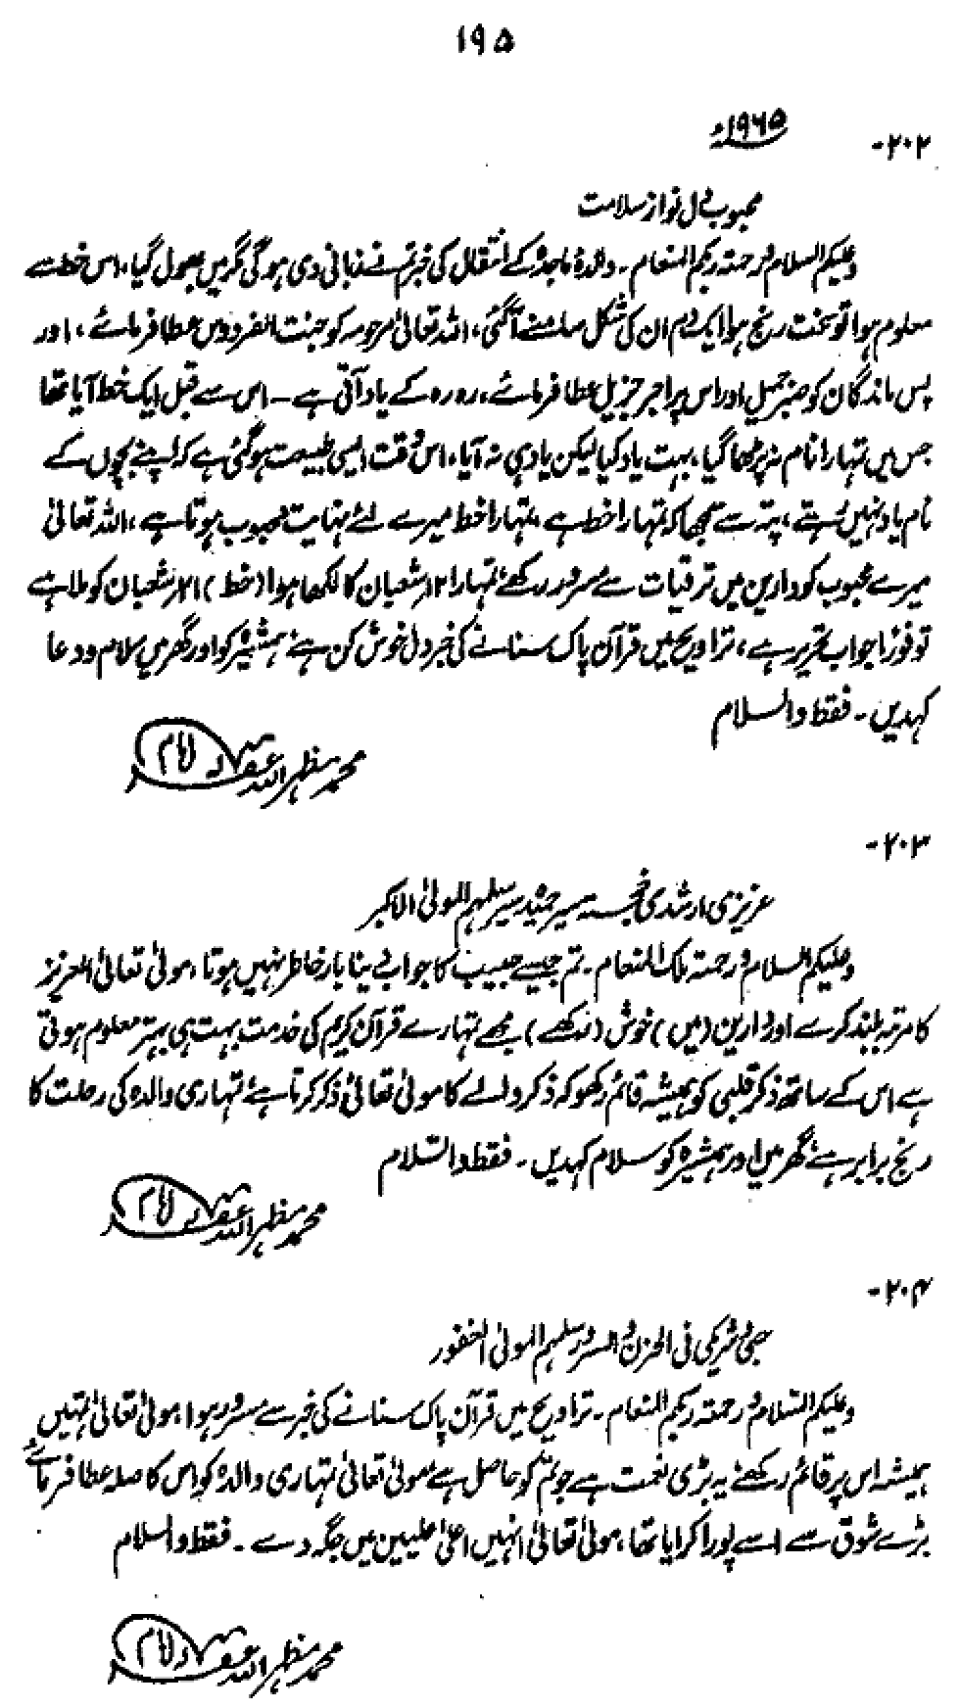 ۱۹۵
۲۰۲-
۱۹۶۵ء
محبوب دل نواز سلامت
وعلیکم السلام ورحمۃ ربکم المنعام۔ والدۂ ماجدہ کے انتقال کی خبر تم نے زبانی دی ہوگی مگر میں بھول گیا، اس خط سے
معلوم ہوا تو سخت رنج ہوا ایک دم ان کی شکل سامنے آگئی، اللہ تعالیٰ مرحومہ کو جنت الفردوس عطا فرمائے، اور
پس ماندگان کو صبر جمیل اور اس پر اجر جزیل عطا فرمائے، رہ رہ کے یاد آتی ہے۔ اس سے قبل ایک خط آیا تھا
جس میں تمہارا نام نہ پڑھا گیا، بہت یاد کیا لیکن یاد ہی نہ آیا، اس وقت ایسی طبیعت ہوگئی ہے کہ اپنے بچوں کے
نام یاد نہیں رہتے، پتہ سے سمجھا کہ تمہارا خط ہے، تمہارا خط میرے لئے نہایت محبوب ہوتا ہے، اللہ تعالیٰ
میرے محبوب کو دارین میں ترقیات سے مسرور رکھے تمہارا ۱۲؍شعبان کا لکھا ہوا (خط) ۲۱؍شعبان کو ملا ہے
تو فوراً جواب تحریر ہے، تراویح میں قرآن پاک سنانے کی خبر دل خوش کن ہے ہمشیر کو اور گھر میں سلام و دعا
کہدیں۔ فقط والسلام
محمد مظہر اللہ غفرلہ امام
۲۰۳-
عزیزی ارشدی خجستہ سیر حمید سیر سلمہم المولیٰ الاکبر
وعلیکم السلام ورحمۃ ملک المنعام۔ تم جیسے حبیب کا جواب دینا بار خاطر نہیں ہوتا، مولیٰ تعالیٰ العزیز
کا مرتبہ بلند کرے اور دارین (میں) خوش (رکھے) مجھے تمہارے قرآن کریم کی خدمت بہت ہی بہتر معلوم ہوتی
ہے اس کے ساتھ ذکر قلبی کو ہمیشہ قائم رکھو کہ ذکر والے کا مولیٰ تعالیٰ ذکر کرتا ہے تمہاری والدہ کی رحلت کا
رنج برابر ہے گھر میں اور ہمشیرہ کو سلام کہدیں۔ فقط والسّلام
محمد مظہر اللہ غفرلہ امام
۲۰۴-
محبی وشریکی فی الحزن والسرور سلمہم المولیٰ الغفور
وعلیکم السّلام ورحمۃ ربکم المنعام۔ تراویح میں قرآن پاک سنانے کی خبر سے مسرور ہوا، مولیٰ تعالیٰ تمہیں
ہمیشہ اس پر قائم رکھے یہ بڑی نعمت ہے جو تم کو حاصل ہے مولیٰ تعالیٰ تمہاری والدہ کو اس کا صلہ عطا فرمائے
بڑے شوق سے اسے پورا کرایا تھا، مولیٰ تعالیٰ انہیں اعلیٰ علیین میں جگہ دے۔ فقط والسلام
محمد مظہر اللہ غفرلہ امام